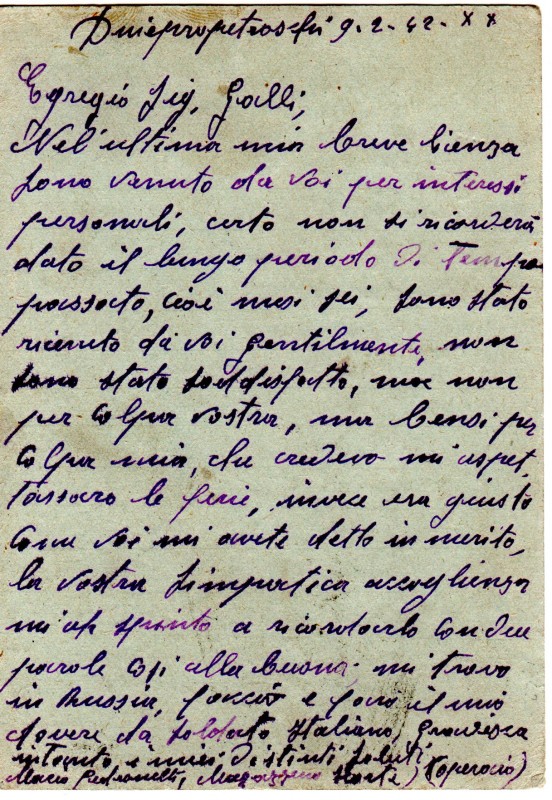 Dniepropetroschi 9-2-42-XX
Egregio Sig, Galli,
Nel'ultima mia breve licenza
sono venuto da voi per interessi
personali, certo non si ricorderà
dato il lungo periodo di tempo
passato, cioè mesi sei, sono stato
ricevuto da voi gentilmente, non
sono stato soddisfatto, ma non
per colpa vostra, ma bensi per
colpa mia, che credevo mi aspet,
tassaro le ferie, invece era giusto
come voi mi avete detto in merito,
la vostra simpatica accoglienza
mi ha spinto a ricordarlo con due
parole così alla buona; mi trovo
in Russia, faccio e farò il mio
dovere da soldato Italiano, Gradisca
intanto i miei distinti saluti
Mario Pedranelli, Magazzeno (operaio)